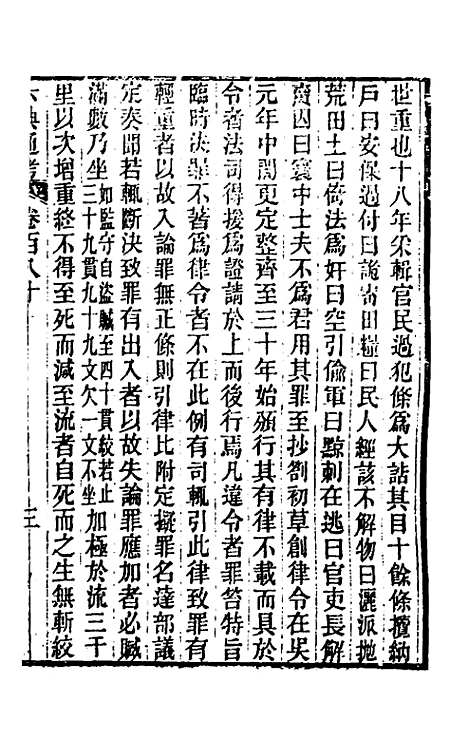 世重也十八年采輯官民過犯條爲大誥其目十餘條攬納
戸曰安保過付曰詭寄田糧曰民人經該不解物曰灑派抛
荒田土曰倚法爲奸曰空引偷軍曰黥刺在逃曰官吏長解
賣囚曰寰中士夫不爲君用其罪至抄劄初草創律令在吳
元年中間更定整齊至三十年始頒行其有律不載而具於
令者法司得援爲證請於上而後行焉凡違令者罪笞特旨
臨時決罪不著爲律令者不在此例有司輒引此律致罪有
輕重者以故入論罪無正條則引律比附定擬罪名達部議
定奏聞若輒斷決致罪有出入者以故失論罪應加者必贓
滿數乃坐如監守自盜贓至四十貫絞若止三十九貫九十九文欠一文不坐加極於流三千
里以次增重終不得至死而減至流者自死而之生無斬絞
六典通考 卷百八十 三